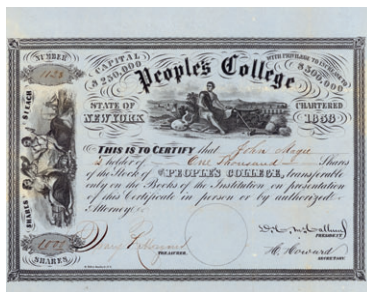 NUMBER
1123
CAPITAL
$250,000
WITH PRIVILEGE TO INCREASE TO
$500,000
People's College
STATE OF
NEW YORK
CHARTERED
1853
SHARES $1 EACH
THIS IS TO CERTIFY that John Magee
is holder of One Thousand Shares
of the Stock of PEOPLE'S COLLEGE, transferable
only on the Books of the Institution on presentation
of this Certificate in person or by authorized
Attorney
TREASURER
PRESIDENT
H. Howard
SECRETARY
SHARES